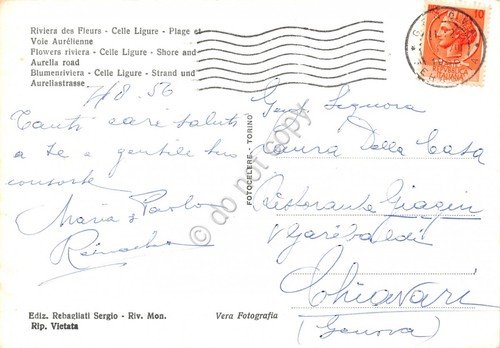 Riviera des Fleurs - Celle Ligure - Plage et
Voie Aurélienne
Flowers riviera - Celle Ligure - Shore and
Aurelia road
Blumenriviera - Celle Ligure - Strand und
Aureliastrasse
7/8.56
Tanti cari saluti
a te e gentile tuo
consorte
Maria e Paolo
Ediz. Rebagliati Sergio - Riv. Mon.
Rip. Vietata
Vera Fotografia
FOTOCELERE - TORINO
© do not copy
10
Gent. Signora
Laura Della Casa
Ristorante
V Garibaldi
Chiavari
(Genova)